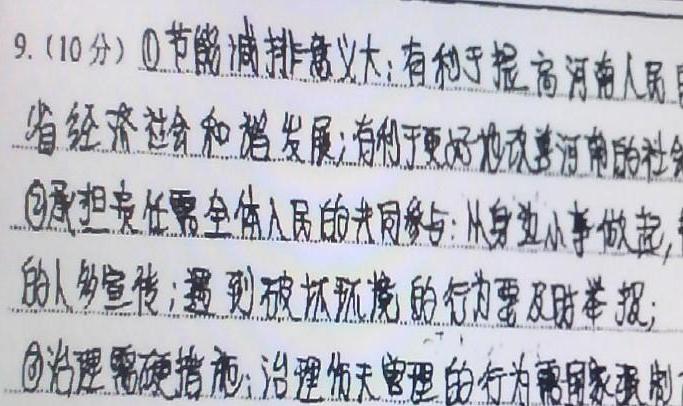 9.（10分）①节能减排意义大：有利于提高河南人民
省经济社会和谐发展；有利于更好地改善河南的社会
②承担责任需全体人民的共同参与：从身边小事做起，
的人多宣传；遇到破坏环境的行为要及时举报；
③治理需硬措施：治理伤天害理的行为需国家强制